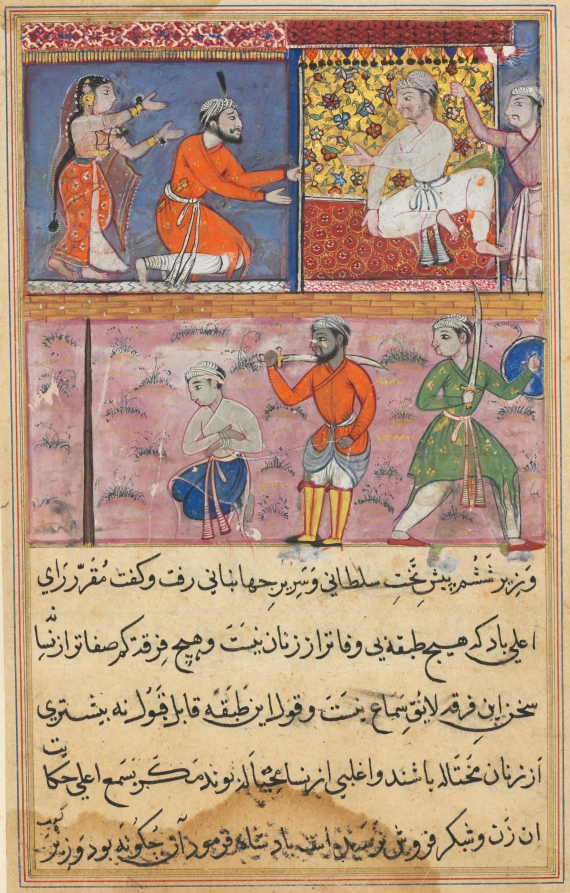 وزیر ششم پیش تخت سلطانی و سریر جهانبانی رفت و کفت مقرر رای
اعلی باد که هیچ طبقه بی وفاتر از زنان نیست و هیچ فرقه کم صفاتر از نسا
سخن این فرقه لایق سماع نیست و قول این طبقه قابل قبول نه بیشتری
از زنان محتاله باشند و اغلبی از نسا مغتاله بوند مکر بسمع اعلی حکایت
ان زن و شکر فروش نرسیده است بادشاه فرمود آن چکونه بود وزیر